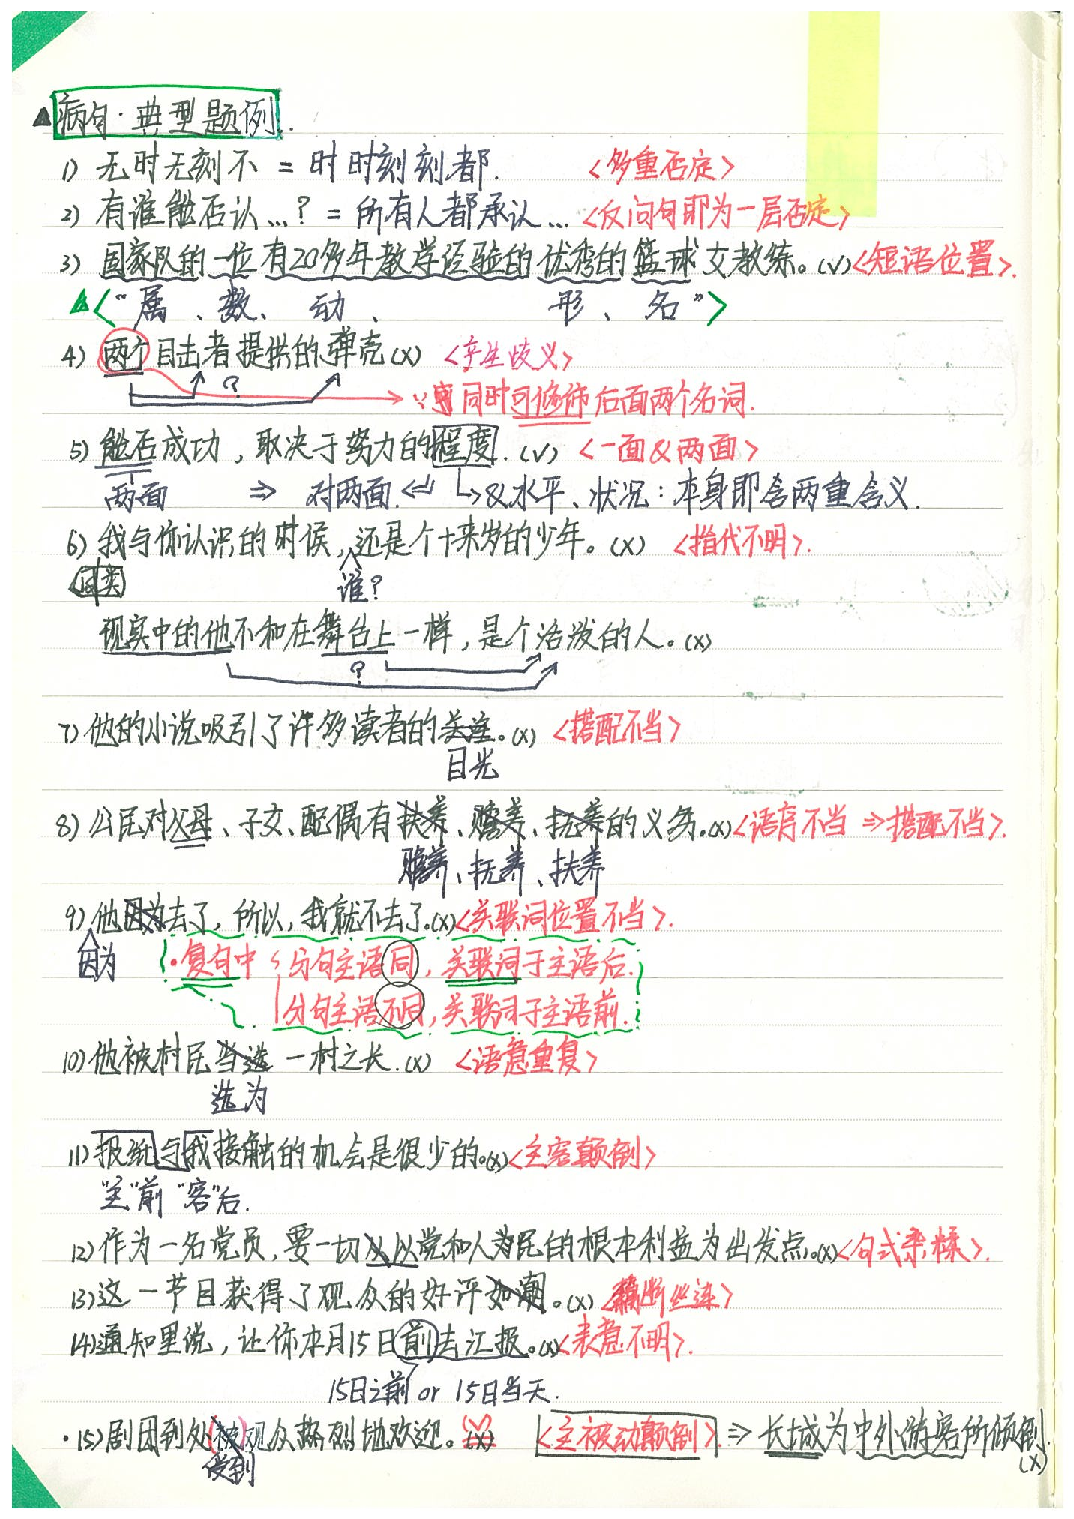 病句·典型题例.
1) 无时无刻不 = 时时刻刻都. <多重否定>
2) 有谁能否认…? = 所有人都承认… <反问句即为一层否定>
3) 国家队的一位有20多年教学经验的优秀的篮球女教练。(√) <短语位置>.
<“属、数、动、形、名”>
4) 两个目击者提供的弹壳(×) <产生歧义>
? 同时可修饰后面两个名词.
5) 能否成功，取决于努力的程度. (√) <一面&两面>
两面 ⇒ 对两面 ⇐ ↳&水平、状况：本身即含两重含义.
6) 我与你认识的时候，还是个十来岁的少年。(×) <指代不明>.
同类 谁?
现实中的他不和在舞台上一样，是个活泼的人。(×)
?
7) 他的小说吸引了许多读者的关注。(×) <搭配不当>
目光
8) 公民对父母、子女、配偶有扶养、赡养、抚养的义务。(×) <语序不当 ⇒搭配不当>.
赡养、抚养、扶养
9) 他因为去了，所以，我就不去了。(×) <关联词位置不当>.
因为 ·复句中 分句主语同，关联词于主语后.
分句主语不同，关联词于主语前.
10) 他被村民当选一村之长. (×) <语意重复>
选为
11) 报纸与我接触的机会是很少的。(×) <主客颠倒>
“主”前“客”后.
12) 作为一名党员，要一切以党和人民的根本利益为出发点。(×) <句式杂糅>.
13) 这一节目获得了观众的好评如潮。(×) <藕断丝连>
14) 通知里说，让你本月15日前去汇报。(×) <表意不明>.
15日之前 or 15日当天.
·15) 剧团到处(被)观众热烈地欢迎。(×) <主被动颠倒> ⇒ 长城为中外游客所倾倒.
受到 (×)